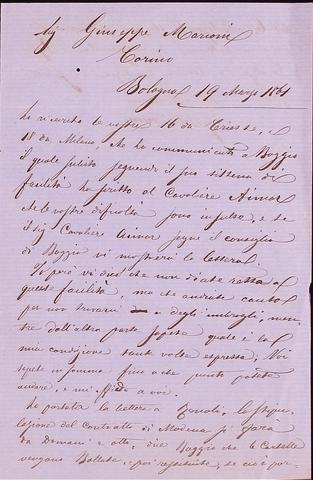 Sig. Giuseppe Marioni
Torino
Bologna 19 Marzo 1861
ho ricevuto le vostre 16 da Trieste, e
18 da Milano, che ho communicati a Boggio
il quale subito seguendo il suo sistema di
facilità ha scritto al Cavaliere Aimar
che le vostre difficoltà sono insulse, e se
il sig Cavaliere Aimar segue il consiglio
di Boggio vi mostrerà la lettera.
Io però vi dico che non diate retta a
queste facilità, ma che andiate cauto
per non trovarvi degli imbrogli, men-
tre dall'altra parte sapete quale è la
mia condizione tante volte espressa; Voi
sapete in somma fino a che punto potete
andare, e mi affido a voi.
Ho portato la lettera a la stipu-
lazione del Contratto di Modena si farà
da Domani e otto, dice Boggio che le Cartelle
vengano Bollate, poi se ciò por-